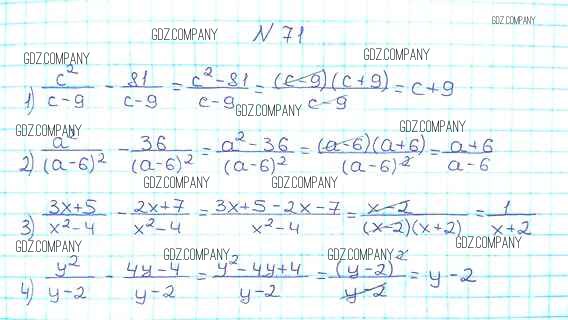 GDZ.COMPANY
GDZ.COMPANY № 71
GDZ.COMPANY GDZ.COMPANY
1) c²/(c-9) - 81/(c-9) = (c²-81)/(c-9) = (c-9)(c+9)/(c-9) = c+9
GDZ.COMPANY
GDZ.COMPANY GDZ.COMPANY
2) a²/(a-6)² - 36/(a-6)² = (a²-36)/(a-6)² = (a-6)(a+6)/(a-6)² = (a+6)/(a-6)
GDZ.COMPANY GDZ.COMPANY
3) (3x+5)/(x²-4) - (2x+7)/(x²-4) = (3x+5-2x-7)/(x²-4) = (x-2)/((x-2)(x+2)) = 1/(x+2)
GDZ.COMPANY GDZ.COMPANY GDZ.COMPANY GDZ.COMPANY
4) y²/(y-2) - (4y-4)/(y-2) = (y²-4y+4)/(y-2) = (y-2)²/(y-2) = y-2
GDZ.COMPANY